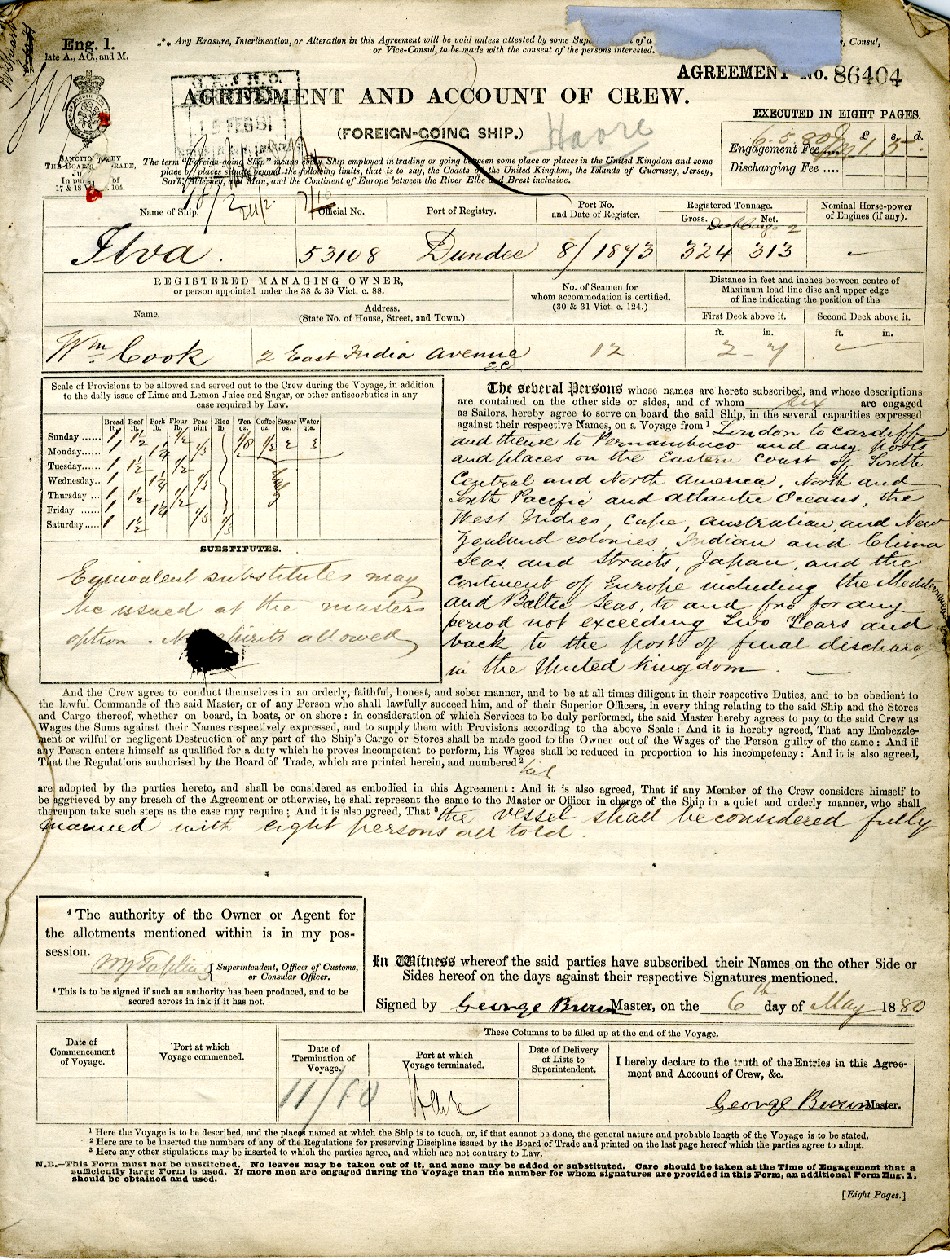 Eng. 1.
late A., AC., and M.
Any Erasure, Interlineation, or Alteration in this Agreement will be void unless attested by some
or Vice-Consul, to be made with the consent of the persons interested.
Consul,
AGREEMENT No. 86404
AGREEMENT AND ACCOUNT OF CREW.
(FOREIGN-GOING SHIP.)
EXECUTED IN EIGHT PAGES.
£ s. d.
Engagement Fee
Discharging Fee ....
SANCTIONED BY
THE BOARD OF TRADE,
The term "Foreign-going Ship" means every Ship employed in trading or going between some place or places in the United Kingdom and some
place or places situate beyond the following limits, that is to say, the Coasts of the United Kingdom, the Islands of Guernsey, Jersey,
Sark, Alderney, and Man, and the Continent of Europe between the River Elbe and Brest inclusive.
Name of Ship. Official No. Port of Registry. Port No. and Date of Register. Registered Tonnage. Gross. Net. Nominal Horse-power of Engines (if any).
Ilva. 53108 Dundee 8/1873 324 313
REGISTERED MANAGING OWNER,
or person appointed under the 38 & 39 Vict. c. 88.
Name. Address. (State No. of House, Street, and Town.)
No. of Seamen for
whom accommodation is certified.
(30 & 31 Vict. c. 124.)
Distance in feet and inches between centre of
Maximum load line disc and upper edge
of line indicating the position of the
First Deck above it. Second Deck above it.
ft. in. ft. in.
Wm Cook 2 East India Avenue 12
Scale of Provisions to be allowed and served out to the Crew during the Voyage, in addition
to the daily issue of Lime and Lemon Juice and Sugar, or other antiscorbutics in any
case required by Law.
Bread lb. Beef lb. Pork lb. Flour lb. Peas pint Rice lb. Tea oz. Coffee oz. Sugar oz. Water
Sunday ......
Monday ......
Tuesday ......
Wednesday ...
Thursday ......
Friday ......
Saturday ......
SUBSTITUTES.
Equivalent substitutes may
be issued at the masters
option. No spirits allowed
The several Persons whose names are hereto subscribed, and whose descriptions
are contained on the other side or sides, and of whom six are engaged
as Sailors, hereby agree to serve on board the said Ship, in the several capacities expressed
against their respective Names, on a Voyage from¹ London to Cardiff
and thence to Pernambuco and any ports
and places on the Eastern Coast of South
Central and North America, North and
South Pacific and Atlantic Oceans, the
West Indies, Cape, Australian, and New
Zealand colonies, Indian and China
Seas and Straits, Japan, and the
Continent of Europe including the
and Baltic Seas, to and fro for any
period not exceeding Two Years and
back to the port of final
in the United Kingdom.
And the Crew agree to conduct themselves in an orderly, faithful, honest, and sober manner, and to be at all times diligent in their respective Duties, and to be obedient to
the lawful Commands of the said Master, or of any Person who shall lawfully succeed him, and of their Superior Officers, in every thing relating to the said Ship and the Stores
and Cargo thereof, whether on board, in boats, or on shore: In consideration of which Services to be duly performed, the said Master hereby agrees to pay to the said Crew as
Wages the Sums against their Names respectively expressed, and to supply them with Provisions according to the above Scale: And it is hereby agreed, That any Embezzle-
ment or wilful or negligent Destruction of any part of the Ship's Cargo or Stores shall be made good to the Owner out of the Wages of the Person guilty of the same: And if
any Person enters himself as qualified for a duty which he proves incompetent to perform, his Wages shall be reduced in proportion to his incompetency: And it is also agreed,
That the Regulations authorised by the Board of Trade, which are printed herein, and numbered²
are adopted by the parties hereto, and shall be considered as embodied in this Agreement: And it is also agreed, That if any Member of the Crew considers himself to
be aggrieved by any breach of the Agreement or otherwise, he shall represent the same to the Master or Officer in charge of the Ship in a quiet and orderly manner, who shall
thereupon take such steps as the case may require: And it is also agreed, That³ the vessel shall be considered fully
manned with eight persons all told.
⁴ The authority of the Owner or Agent for
the allotments mentioned within is in my pos-
session.
Superintendent, Officer of Customs,
or Consular Officer.
⁴ This is to be signed if such an authority has been produced, and to be
scored across in ink if it has not.
In Witness whereof the said parties have subscribed their Names on the other Side or
Sides hereof on the days against their respective Signatures mentioned.
Signed by George Master, on the 6th day of May 1880
These Columns to be filled up at the end of the Voyage.
Date of Commencement of Voyage. Port at which Voyage commenced. Date of Termination of Voyage. Port at which Voyage terminated. Date of Delivery of Lists to Superintendent.
I hereby declare to the truth of the Entries in this Agree-
ment and Account of Crew, &c.
George Master.
¹ Here the Voyage is to be described, and the places named at which the Ship is to touch, or, if that cannot be done, the general nature and probable length of the Voyage is to be stated.
² Here are to be inserted the numbers of any of the Regulations for preserving Discipline issued by the Board of Trade and printed on the last page hereof which the parties agree to adopt.
³ Here any other stipulations may be inserted to which the parties agree, and which are not contrary to Law.
N.B.—This Form must not be unstitched. No leaves may be taken out of it, and none may be added or substituted. Care should be taken at the Time of Engagement that a
sufficiently large Form is used. If more men are engaged during the Voyage than the number for whom signatures are provided in this Form, an additional Form Eng. 1.
should be obtained and used.
[Eight Pages.]